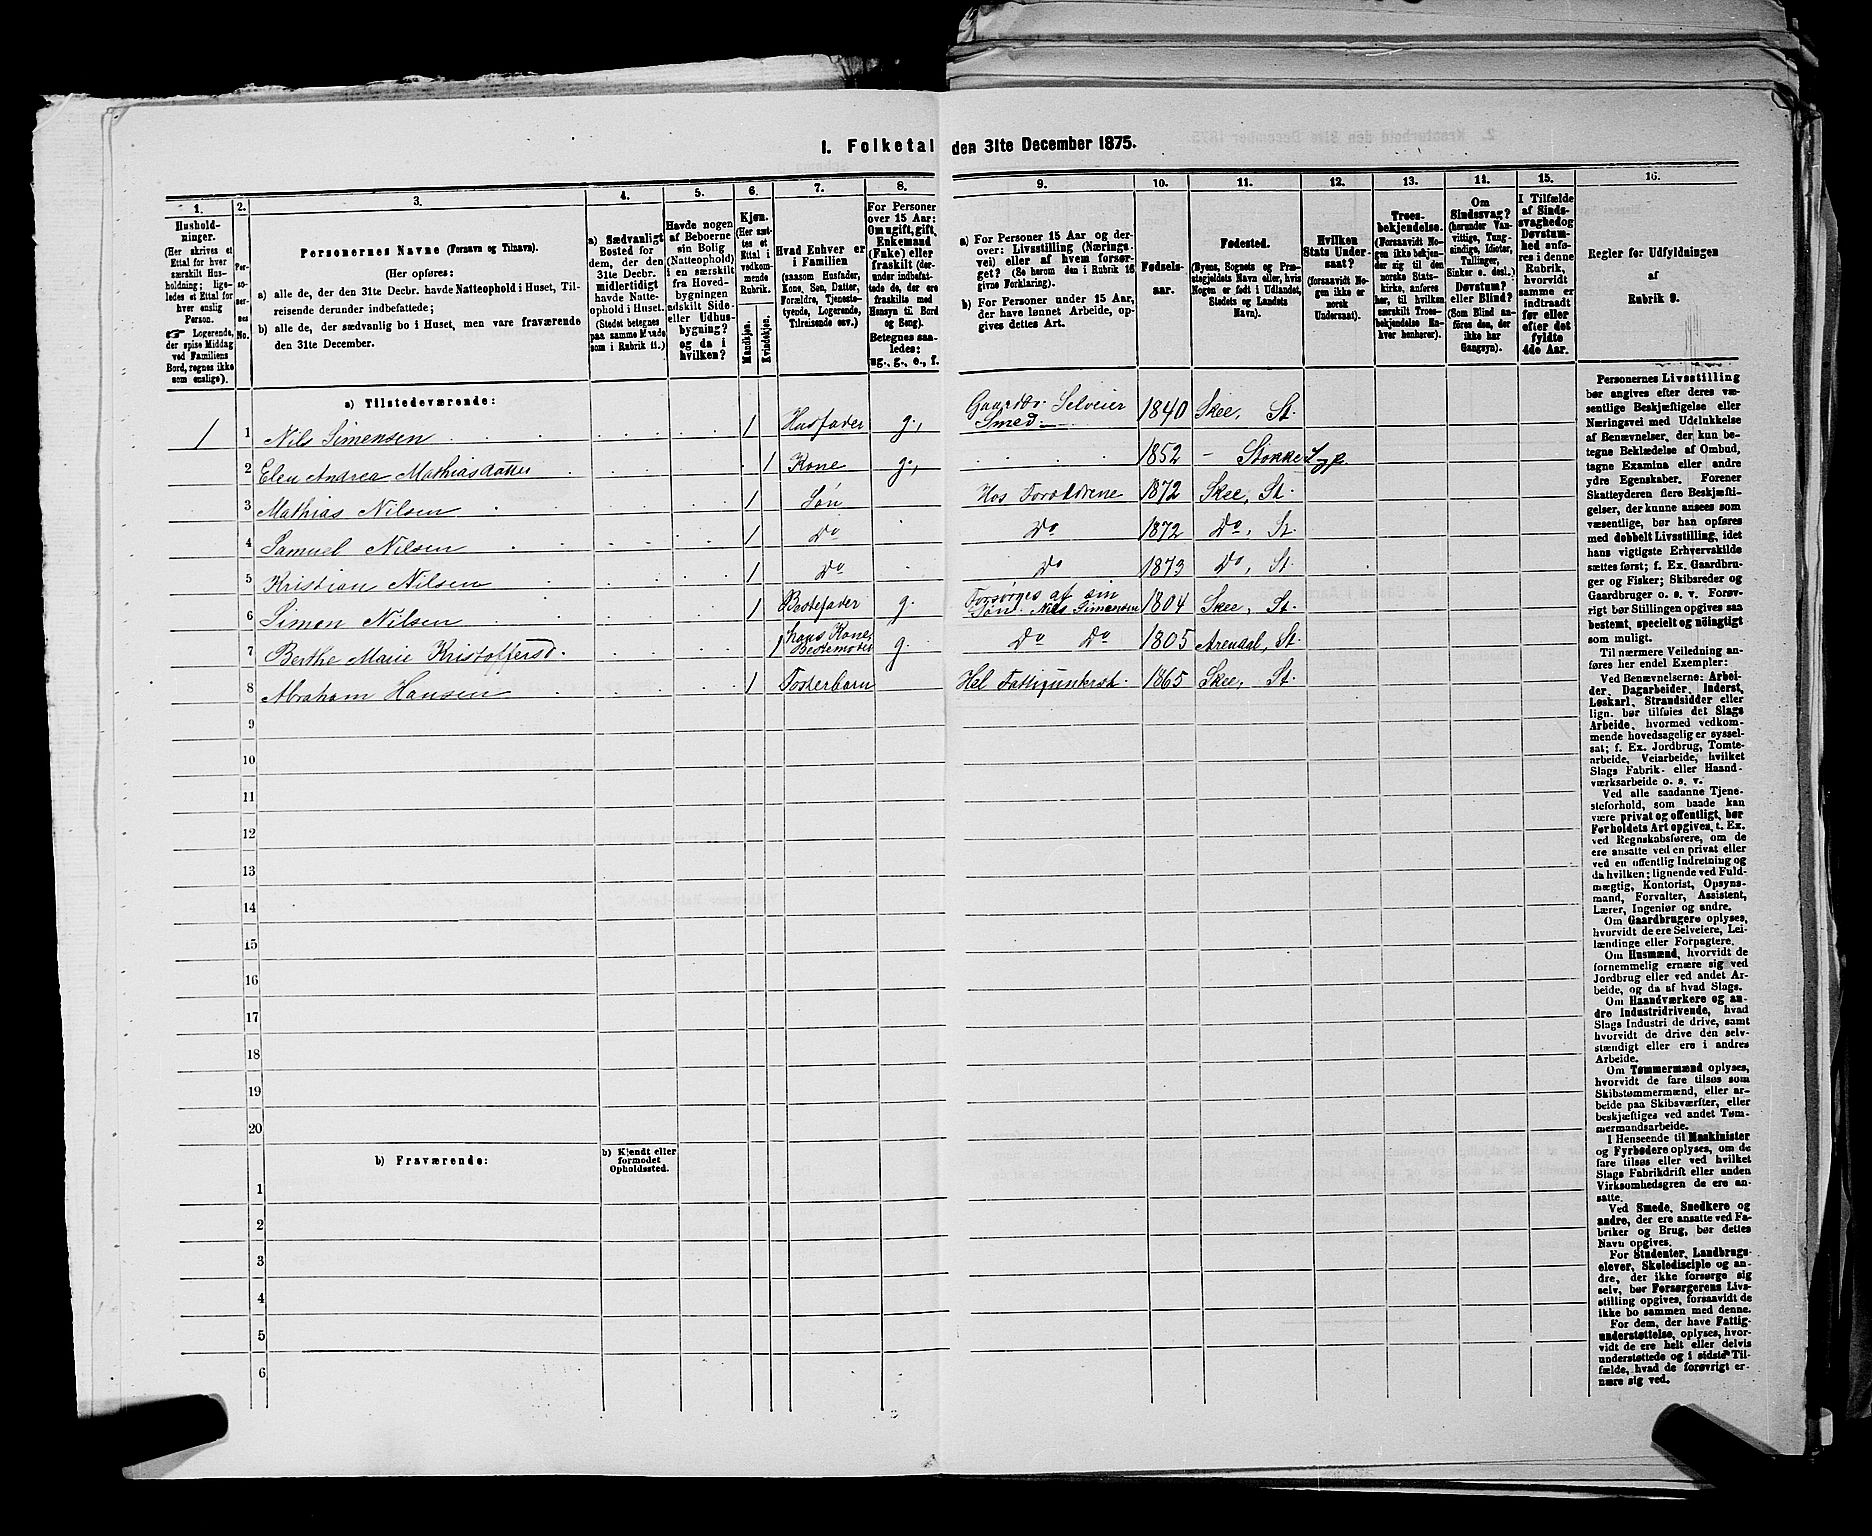 I. Folketal den 31te December 1875.
1.
2.
3.
4.
5.
6.
7.
8.
9.
10.
11.
12.
13.
14.
15.
16.
Hushold-
ninger.
(Her skrives et
Ettal for hver
særskilt Hus-
holdning; lige-
ledes et Ettal for
hver enslig
Person.
☞ Logerende,
der spise Middag
ved Familiens
Bord, regnes ikke
som enslige).
Per-
so-
ner-
nes
No.
Personernes Navne (Fornavn og Tilnavn).
(Her opføres:
a) alle de, der den 31te Decbr. havde Natteophold i Huset, Til-
reisende derunder indbefattede;
b) alle de, der sædvanlig bo i Huset, men vare fraværende
den 31te December.
a) Sædvanligt
Bosted for
dem, der den
31te Decbr.
midlertidigt
havde Natte-
ophold i Huset.
(Stedet betegnes
paa samme Maade
som i Rubrik 11.)
Havde nogen
af Beboerne
sin Bolig
(Natteophold)
i en særskilt
fra Hoved-
bygningen
adskilt Side-
eller Udhus-
bygning?
og da i
hvilken?
Kjøn.
(Her sæt-
tes et
Ettal i
vedkom-
mende
Rubrik.
Mandkjøn.
Kvindekjøn.
Hvad Enhver er
i Familien
(saasom Husfader,
Kone, Søn, Datter,
Forældre, Tjeneste-
tyende, Logerende,
Tilreisende osv.)
For Personer
over 15 Aar:
Om ugift, gift,
Enkemand
(Enke) eller
fraskilt (der-
under indbefat-
tede de, der ere
fraskilte med
Hensyn til Bord
og Seng).
Betegnes saa-
ledes:
ug., g., e., f.
a) For Personer 15 Aar og der-
over: Livsstilling (Nærings-
vei) eller af hvem forsør-
get? (Se herom den i Rubrik 16
givne Forklaring).
b) For Personer under 15 Aar,
der have lønnet Arbeide, op-
gives dettes Art.
Fødsels-
aar.
Fødested.
(Byens, Sognets og Præ-
stegjeldets Navn eller, hvis
Nogen er født i Udlandet,
Stedets og Landets
Navn).
Hvilken
Stats Under-
saat?
(forsaavidt No-
gen ikke er
norsk
Undersaat).
Troes-
bekjendelse.
(Forsaavidt No-
gen ikke bekjen-
der sig til den
norske Stats-
kirke, anføres
her, til hvilken
særskilt Troes-
bekjendelse En-
hver henhører).
Om
Sindssvag?
(herunder Van-
vittige, Tung-
sindige, Idioter,
Tullinger,
Sinker o. desl.)
Døvstum?
eller Blind?
(Som Blind an-
føres den, der
ikke har
Gangsyn).
I Tilfælde
af Sinds-
svaghed og
Døvstum-
hed anfø-
res i denne
Rubrik,
hvorvidt
samme er
indtraadt
før eller
efter det
fyldte
4de Aar.
Regler for Udfyldningen
af
Rubrik 9.
a) Tilstedeværende:
1 1 Nils Simensen 1 Husfader g., Gaardbr. Selveier Smed 1840 Skee, St.
2 Elen Andrea Mathiasdatter 1 Kone g., 1852 – Stokke
3 Mathias Nilsen 1 Søn Hos Forældrene 1872 Skee, St.
4 Samuel Nilsen 1 Do Do 1872 Do, St.
5 Kristian Nilsen 1 Do Do 1873 Do, St.
6 Simen Nilsen 1 Bestefader g. Forsørges af sin Søn Nils Simensen 1804 Skee, St.
7 Berthe Marie Kristoffersd. 1 hans Kone, Bestemoder g. Do Do 1805 Arendal, St.
8 Abraham Hansen 1 Fosterbarn Hel Fattigunderst. 1865 Skee, St.
9
10
11
12
13
14
15
16
17
18
19
20
b) Fraværende:
b) Kjendt eller
formodet
Opholdssted.
1
2
3
4
5
6
Personernes Livsstilling
bør angives efter deres væ-
sentlige Beskjæftigelse eller
Næringsvei med Udelukkelse
af Benævnelser, der kun be-
tegne Beklædelse af Ombud,
tagne Examina eller andre
ydre Egenskaber. Forener
Skatteyderen flere Beskjæfti-
gelser, der kunne ansees som
væsentlige, bør han opføres
med dobbelt Livsstilling, idet
hans vigtigste Erhvervskilde
sættes først; f. Ex. Gaardbru-
ger og Fisker; Skibsreder og
Gaardbruger o. s. v. Forøv-
rigt bør Stillingen opgives saa
bestemt, specielt og nöingtigt
som muligt.
Til nærmere Veiledning an-
føres her endel Exempler:
Ved Benævnelserne: Arbei-
der, Dagarbeider, Inderst,
Løskarl, Strandsidder eller
lign. bør tilføies det Slags
Arbeide, hvormed vedkom-
mende hovedsagelig er syssel-
sat; f. Ex. Jordbrug, Tomte-
arbeide, Veiarbeide, hvilket
Slags Fabrik- eller Haand-
værksarbeide o. s. v.
Ved alle saadanne Tjene-
steforhold, som baade kan
være privat og offentligt, bør
Forholdets Art opgives, t. Ex.
ved Regnskabsførere, om de
ere ansatte ved en privat eller
ved en offentlig Indretning og
da hvilken; lignende ved Fuld-
mægtig, Kontorist, Opsyns-
mand, Forvalter, Assistent,
Lærer, Ingeniør og andre.
Om Gaardbrugere oplyses,
hvorvidt de ere Selveiere, Lei-
lændinge eller Forpagtere.
Om Husmænd, hvorvidt de
fornemmelig ernære sig ved
Jordbrug eller ved andet Ar-
beide, og da af hvad Slags.
Om Haandværkere og an-
dre Industridrivende, hvad
Slags Industri de drive, samt
hvorvidt de drive den selv-
stændigt eller ere i andres
Arbeide.
Om Tømmermænd oplyses,
hvorvidt de fare tilsøs som
Skibstømmermænd, eller ar-
beide paa Skibsværfter, eller
beskjæftiges ved andet Tøm-
mermandsarbeide.
I Henseende til Maskinister
og Fyrbødere oplyses, om de
fare tilsøs eller ved hvilket
Slags Fabrikdrift eller anden
Virksomhedsgren de ere an-
satte.
Ved Smede, Snedkere og
andre, der ere ansatte ved Fa-
briker og Brug, bør dettes
Navn opgives.
For Studenter, Landbrugs-
elever, Skoledisciple og an-
dre, der ikke forsørge sig
selv, bør Forsørgerens Livs-
stilling opgives, forsaavidt de
ikke bo sammen med denne.
For dem, der have Fattig-
understøttelse, oplyses, hvor-
vidt de ere helt eller delvis
understøttede og i sidste Til-
fælde, hvad de forøvrigt er-
nære sig ved.